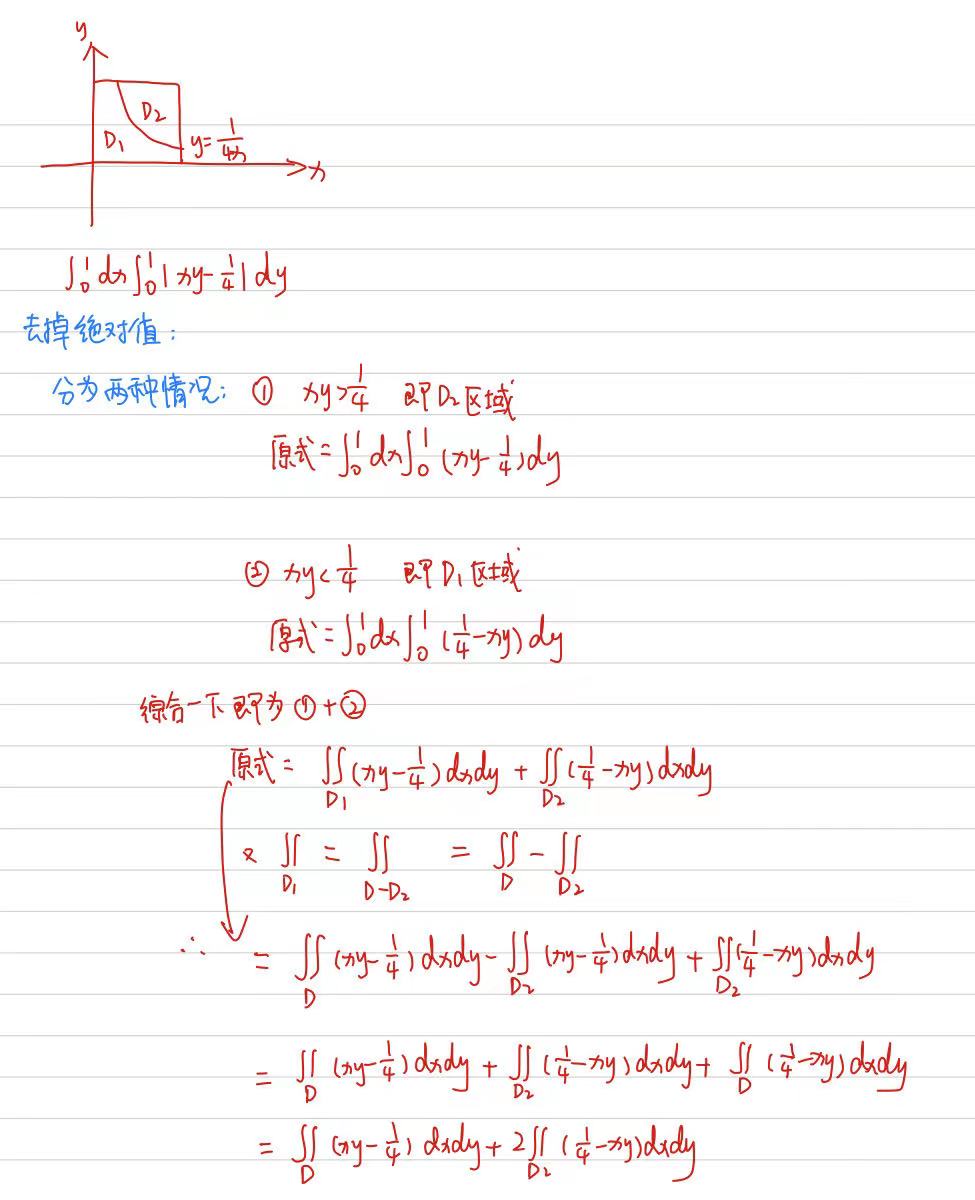 y
D₂
D₁
y=1/4x
x
∫₀¹dx∫₀¹|xy-1/4|dy
去掉绝对值:
分为两种情况: ① xy>1/4 即D₂区域
原式=∫₀¹dx∫₀¹(xy-1/4)dy
② xy<1/4 即D₁区域
原式=∫₀¹dx∫₀¹(1/4-xy)dy
综合一下即为①+②
原式= ∬_D₁(xy-1/4)dxdy+∬_D₂(1/4-xy)dxdy
又 ∬_D₁ = ∬_D-D₂ = ∬_D - ∬_D₂
∴ = ∬_D(xy-1/4)dxdy-∬_D₂(xy-1/4)dxdy+∬_D₂(1/4-xy)dxdy
= ∬_D(xy-1/4)dxdy+∬_D₂(1/4-xy)dxdy+∬_D(1/4-xy)dxdy
= ∬_D(xy-1/4)dxdy+2∬_D₂(1/4-xy)dxdy